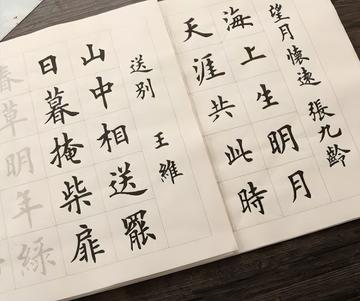 望月懷遠 張九齡
海上生明月
天涯共此時
送别 王維
山中相送罷
日暮掩柴扉
春草明年綠